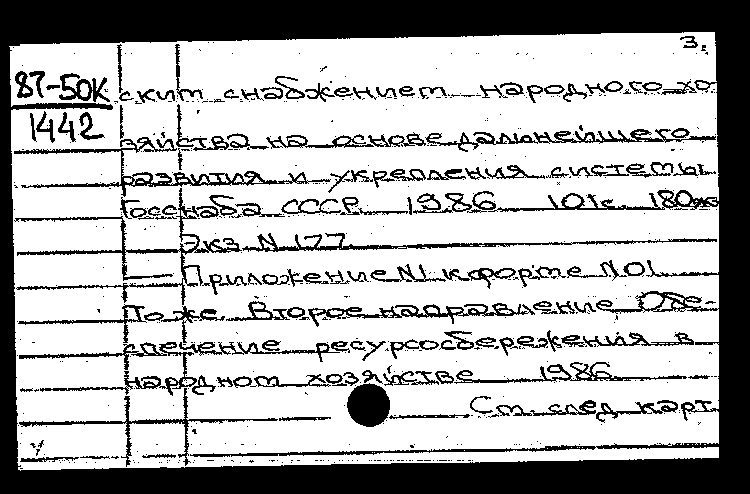 3.
87-50К
1442
ским снабжением народного хо-
зяйства на основе дальнейшего
развития и укрепления системы
Госснаба СССР. 1986 101с. 180экз
Экз. N 177.
— Приложение N1 к форме N 01.
То же. Второе направление. Обе-
спечение ресурсосбережения в
народном хозяйстве 1986.
См. след. карт.